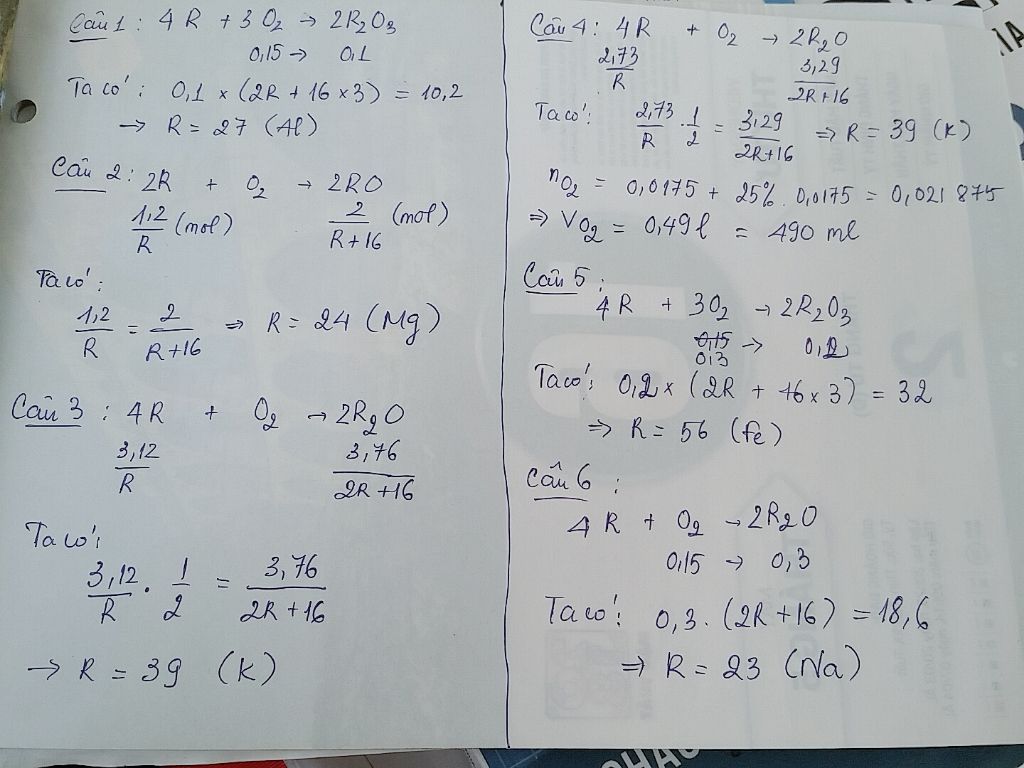 Câu 1 : 4R + 3O₂ → 2R₂O₃
0,15 → 0,1
Ta có : 0,1 × (2R + 16 × 3) = 10,2
→ R = 27 (Al)
Câu 2 : 2R + O₂ → 2RO
1,2/R (mol) 2/(R+16) (mol)
Ta có :
1,2/R = 2/(R+16) ⇒ R = 24 (Mg)
Câu 3 : 4R + O₂ → 2R₂O
3,12/R 3,76/(2R+16)
Ta có :
3,12/R . 1/2 = 3,76/(2R+16)
→ R = 39 (K)
Câu 4 : 4R + O₂ → 2R₂O
2,73/R 3,29/(2R+16)
Ta có : 2,73/R . 1/2 = 3,29/(2R+16) ⇒ R = 39 (K)
nO₂ = 0,0175 + 25% . 0,0175 = 0,021 875
⇒ VO₂ = 0,49 l = 490 ml
Câu 5 :
4R + 3O₂ → 2R₂O₃
0,15 → 0,2
0,3
Ta có : 0,2 × (2R + 16 × 3) = 32
⇒ R = 56 (Fe)
Câu 6 :
4R + O₂ → 2R₂O
0,15 → 0,3
Ta có : 0,3 . (2R + 16) = 18,6
⇒ R = 23 (Na)